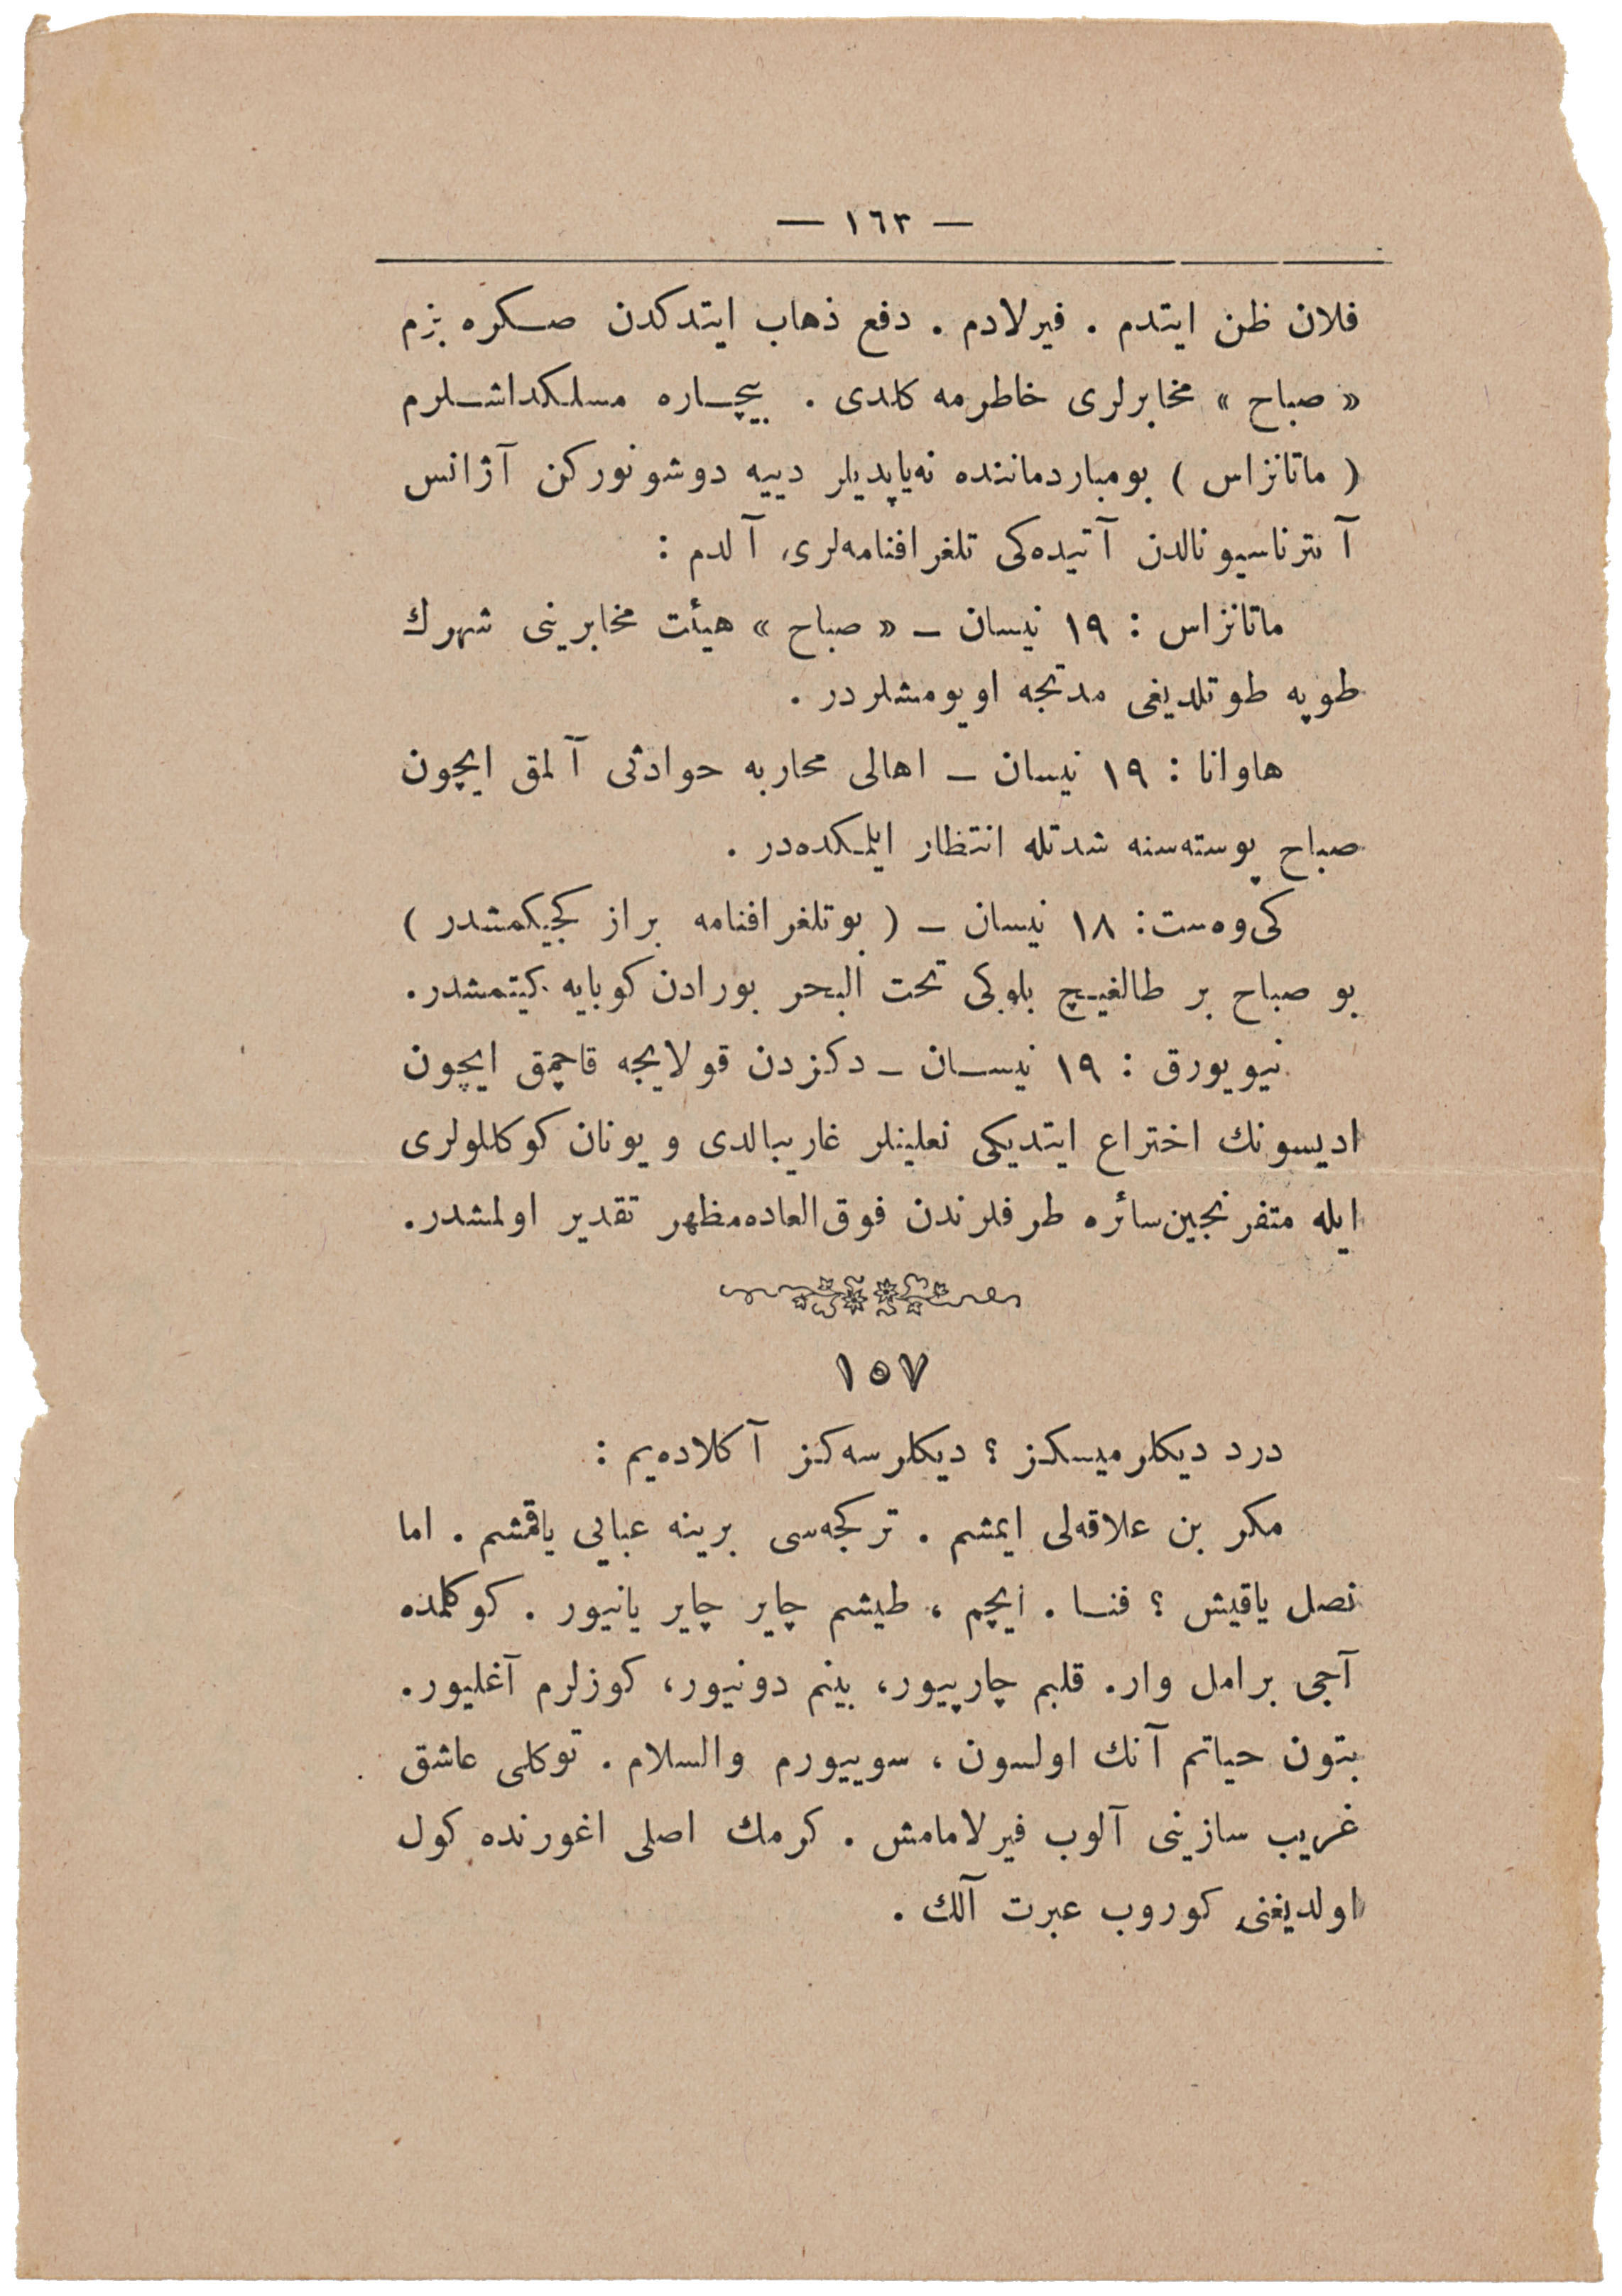 — ١٦٣ —
فلان ظن ایتدم . فیرلادم . دفع ذهاب ایتدکدن صکره بزم
« صباح » مخابرلری خاطرمه کلدی . بیچاره مسلکداشلرم
( ماتانزاس ) بومباردماننده نه‌یاپدیلر دییه دوشونورکن آژانس
آنترناسیونالدن آتیده‌کی تلغرافنامه‌لری آلدم :
ماتانزاس : ١٩ نیسان – « صباح » هیئت مخابرینی شهرك
طوپه طوتلدیغی مدتجه اویومشلردر .
هاوانا : ١٩ نیسان – اهالی محاربه حوادثی آلمق ایچون
صباح پوسته‌سنه شدتله انتظار ایلمکده‌در .
کی‌وه‌ست : ١٨ نیسان – ( بو تلغرافنامه براز کجیکمشدر )
بو صباح بر طالغیچ بلوکی تحت البحر بورادن کوبایه کیتمشدر .
نیویورق : ١٩ نیسان – دکزدن قولایجه قاچمق ایچون
ادیسونك اختراع ایتدیکی نعلینلر غاریبالدی و یونان کوکللولری
ایله متفرنجین سائره طرفلرندن فوق‌العاده‌مظهر تقدیر اولمشدر .
١٥٧
درد دیکلرمیسکز ؟ دیکلرسه‌کز آکلاده‌یم :
مکر بن علاقه‌لی ایمشم . ترکجه‌سی برینه عبایی یاقمشم . اما
نصل یاقیش ؟ فنا . ایچم ، طیشم چایر چایر یانیور . کوکلمده
آجی بر امل وار . قلبم چارپیور ، بینم دونیور ، کوزلرم آغلیور .
بتون حیاتم آنك اولسون ، سوییورم والسلام . توکلی عاشق
غریب سازینی آلوب فیرلامامش . کرمك اصلی اغورنده کول
اولدیغنی کوروب عبرت آلك .